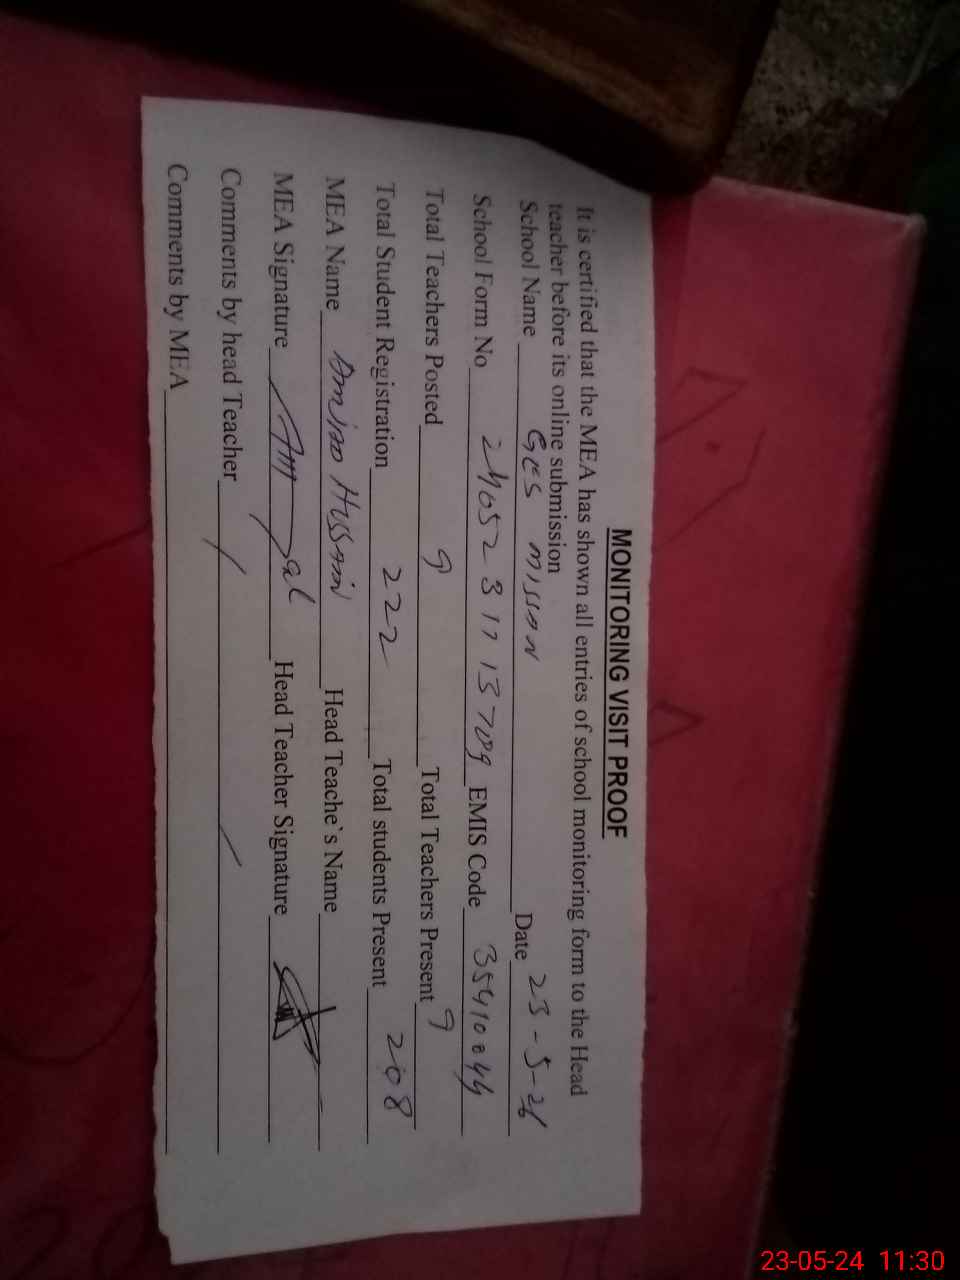 MONITORING VISIT PROOF
It is certified that the MEA has shown all entries of school monitoring form to the Head
teacher before its online submission
School Name GES Date 23-5-24
School Form No EMIS Code 35410044
Total Teachers Posted 9 Total Teachers Present 9
Total Student Registration 222 Total students Present 208
MEA Name Hussain Head Teache`s Name
MEA Signature Head Teacher Signature
Comments by head Teacher
Comments by MEA
23-05-24 11:30